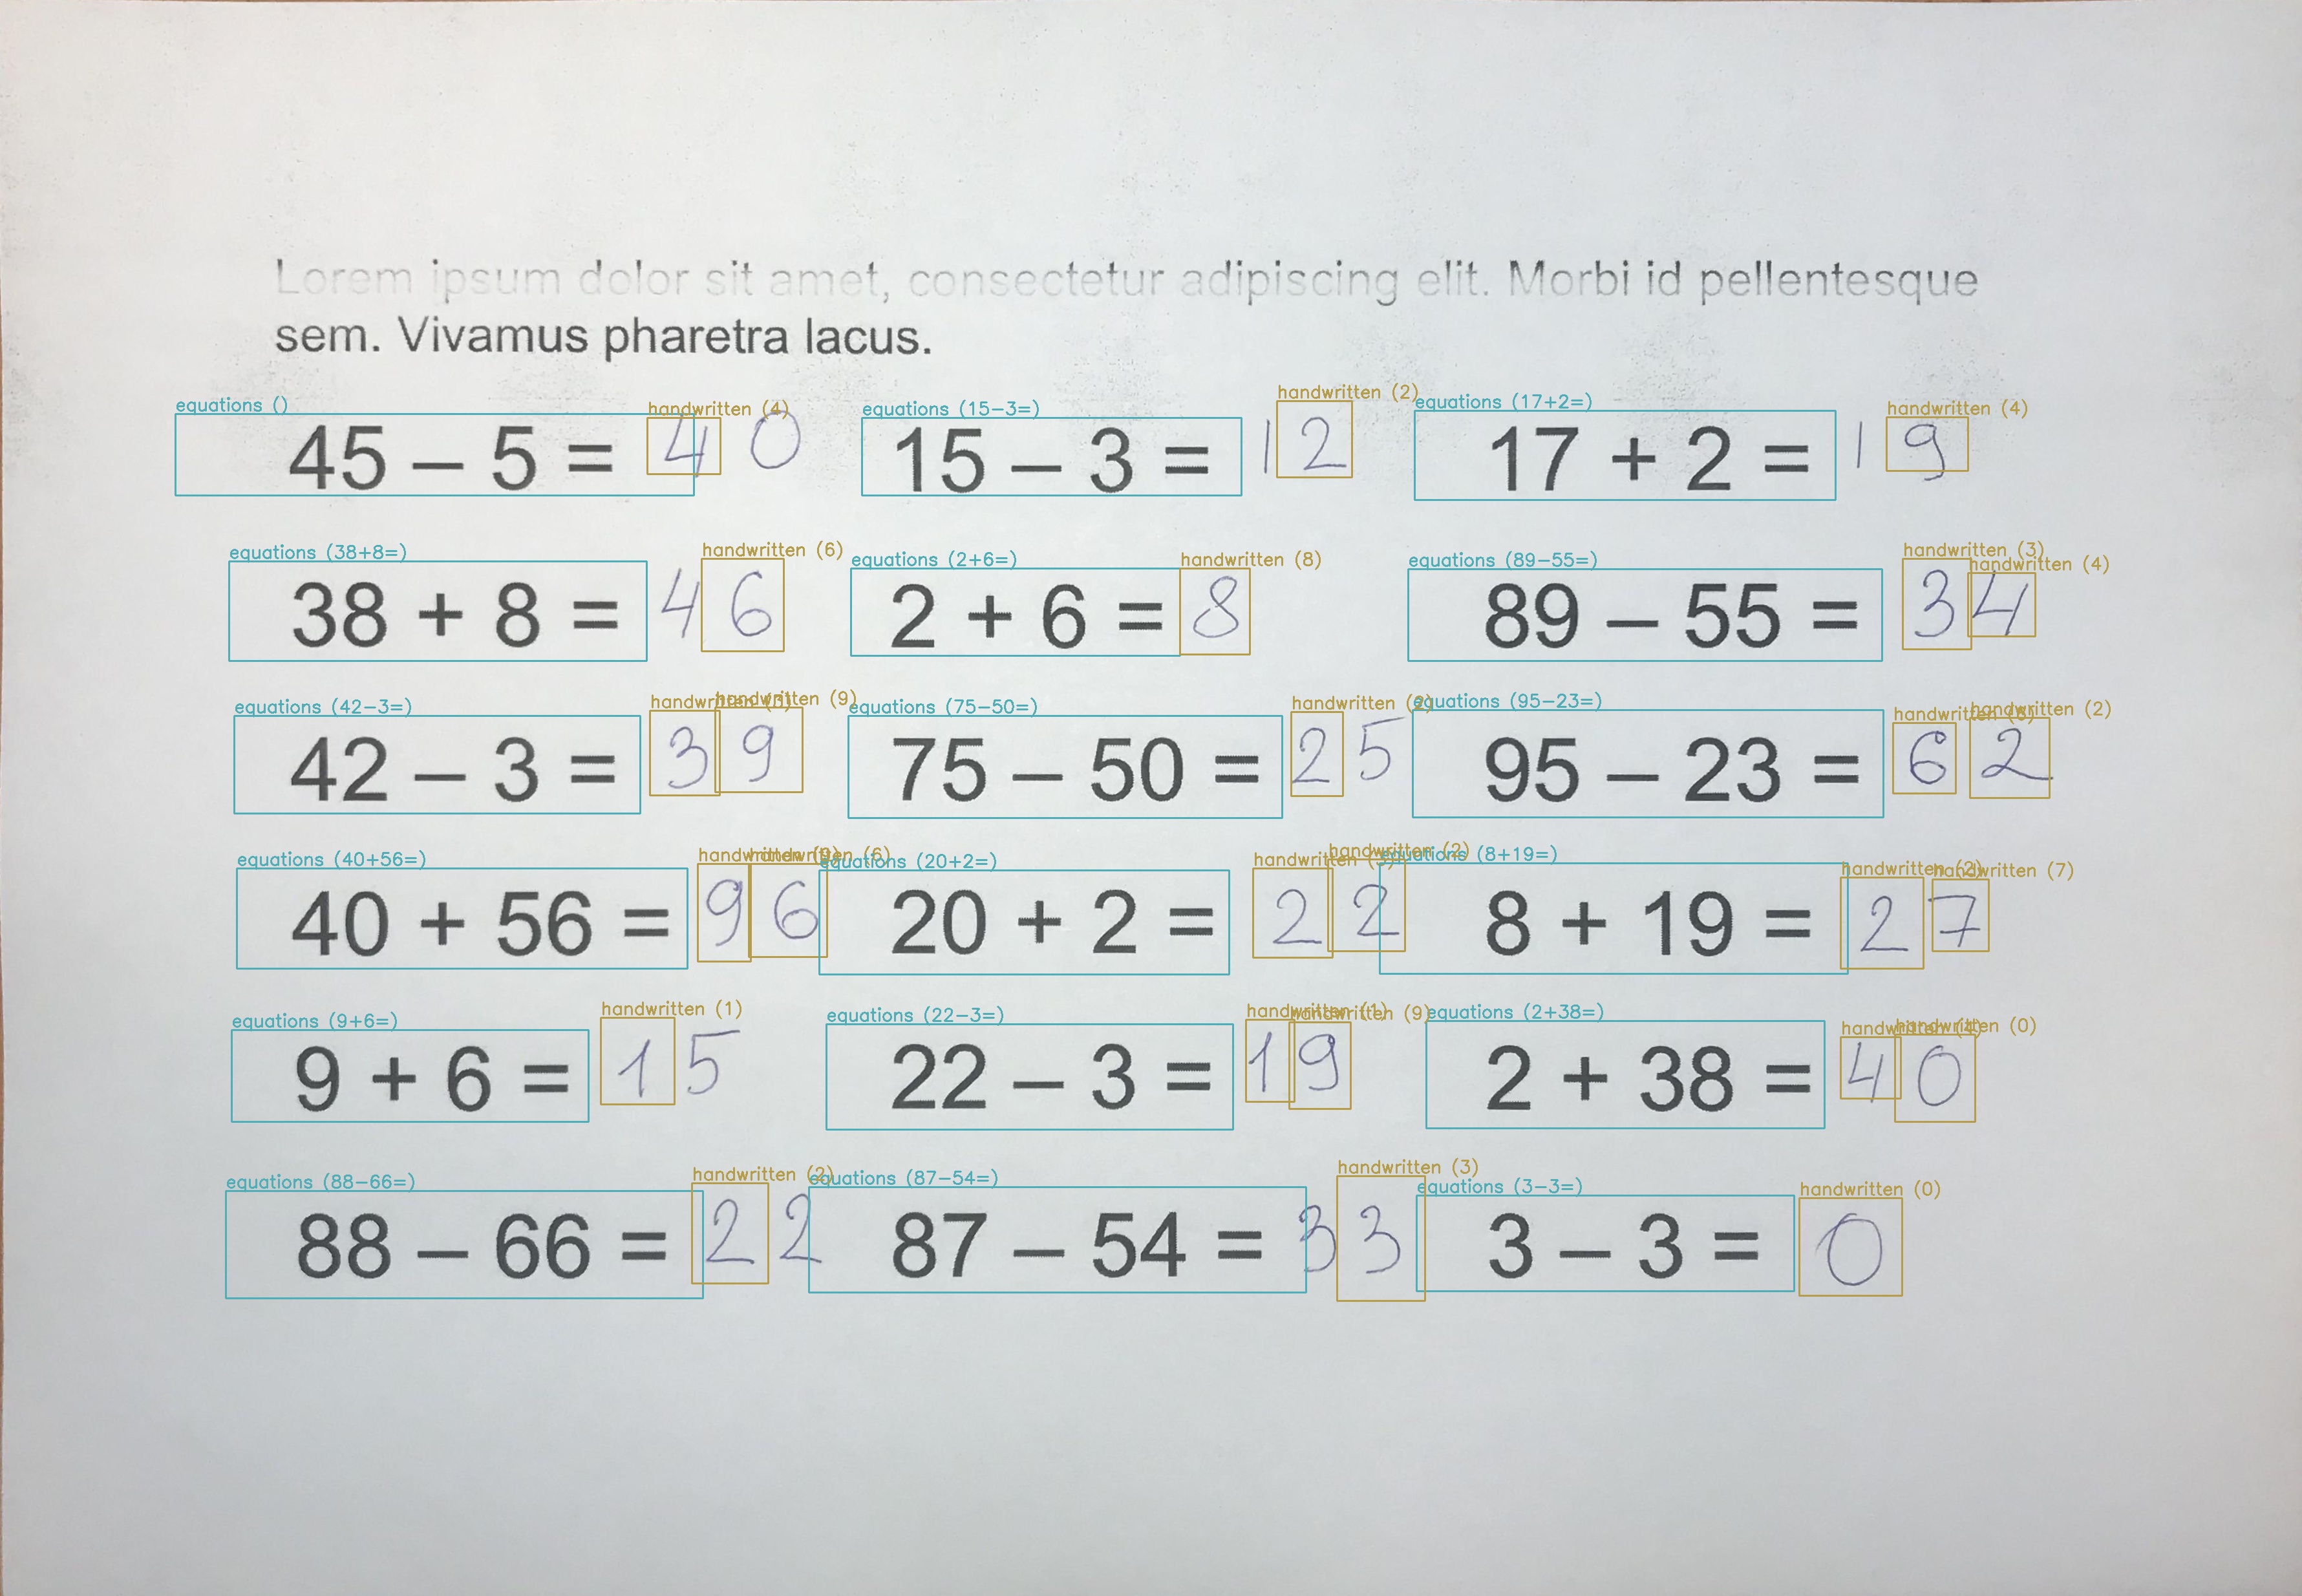 Lorem ipsum dolor sit amet, consectetur adipiscing elit. Morbi id pellentesque
sem. Vivamus pharetra lacus.
equations () handwritten (4) equations (15-3=) handwritten (2) equations (17+2=) handwritten (4)
45 – 5 = 40 15 – 3 = 12 17 + 2 = 19
equations (38+8=) handwritten (6) equations (2+6=) handwritten (8) equations (89-55=) handwritten (3) handwritten (4)
38 + 8 = 46 2 + 6 = 8 89 – 55 = 34
equations (42-3=) handwritten handwritten (9) equations (75-50=) handwritten equations (95-23=) handwritten handwritten (2)
42 – 3 = 39 75 – 50 = 25 95 – 23 = 62
equations (40+56=) handwritten handwritten (6) equations (20+2=) handwritten handwritten (2) equations (8+19=) handwritten handwritten (7)
40 + 56 = 96 20 + 2 = 22 8 + 19 = 27
equations (9+6=) handwritten (1) equations (22-3=) handwritten handwritten (9) equations (2+38=) handwritten handwritten (0)
9 + 6 = 15 22 – 3 = 19 2 + 38 = 40
equations (88-66=) handwritten (2) equations (87-54=) handwritten (3) equations (3-3=) handwritten (0)
88 – 66 = 22 87 – 54 = 33 3 – 3 = 0